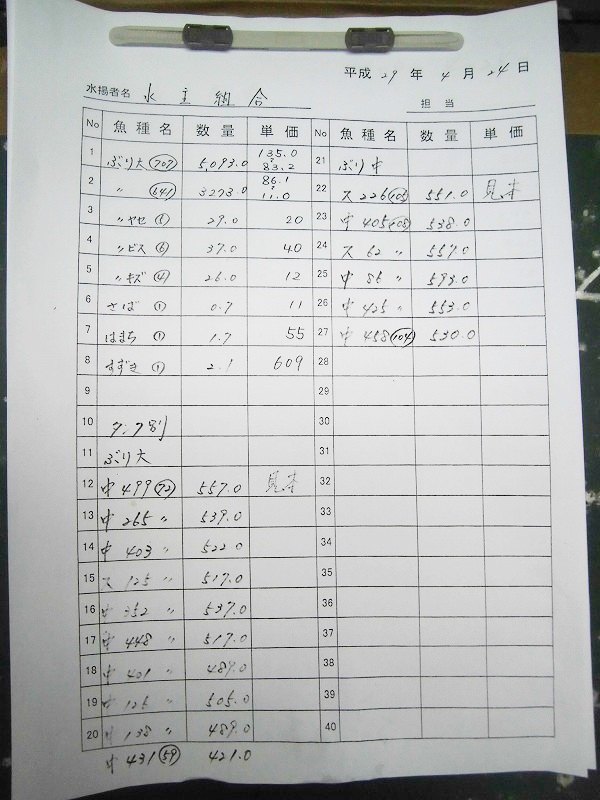 平成 29 年 4 月 24 日
水揚者名 水主組合
担当
No 魚種名 数量 単価
1 ぶり大 (707) 5,093.0 135.0 〜 83.2
2 〃 (641) 3293.0 86.1 〜 11.0
3 〃ヤセ (6) 29.0 20
4 〃ビス (6) 37.0 40
5 〃キズ (4) 26.0 12
6 さば (1) 0.7 11
7 はまち (1) 1.7 55
8 すずき (1) 2.1 609
9
10 7.7割
11 ぶり大
12 中 499 (72) 557.0 見本
13 中 265 〃 539.0
14 中 403 〃 522.0
15 ス 125 〃 517.0
16 中 352 〃 537.0
17 中 448 〃 517.0
18 中 401 〃 489.0
19 中 125 〃 505.0
20 中 138 〃 489.0
中 431 (59) 421.0
No 魚種名 数量 単価
21 ぶり中
22 ス 226 (105) 551.0 見本
23 中 405 (105) 538.0
24 ス 62 〃 557.0
25 中 86 〃 593.0
26 中 425 〃 553.0
27 中 458 (104) 530.0
28
29
30
31
32
33
34
35
36
37
38
39
40